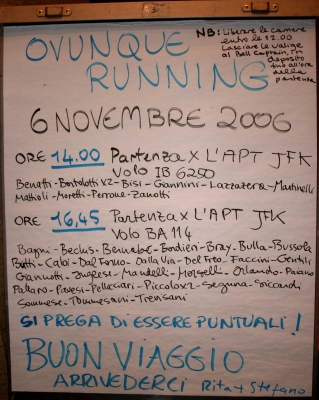 OVUNQUE
RUNNING
NB: Liberare le camere
entro le 12.00
Lasciare le valige
al Bell Captain, in
deposito
fino all'ora
della
partenza
6 NOVEMBRE 2006
ORE 14.00 Partenza x L'APT JFK
Volo IB 6250
Benatti - Bortolotti x2 - Bisi - Giannini - Lazzazera - Martinelli
Mattioli - Moretti - Perrone - Zanotti
ORE 16,45 Partenza x L'APT JFK
VOLO BA 114
Bagni - Bennabe - Bondieri - Bray - Bulla - Bussola
Butti - Cabi - Dal Forno - Dalla Via - Del Freo - Faccini - Gentili
Giannotti - Mandelli - Morselli - Orlando - Paiano
Pallaro - Pavesi - Pellacani - Piccolo x2 - Segunna - Siccardi
Soumese - Toumesani - Trensani
SI PREGA DI ESSERE PUNTUALI!
BUON VIAGGIO
ARRIVEDERCI Rita + Stefano